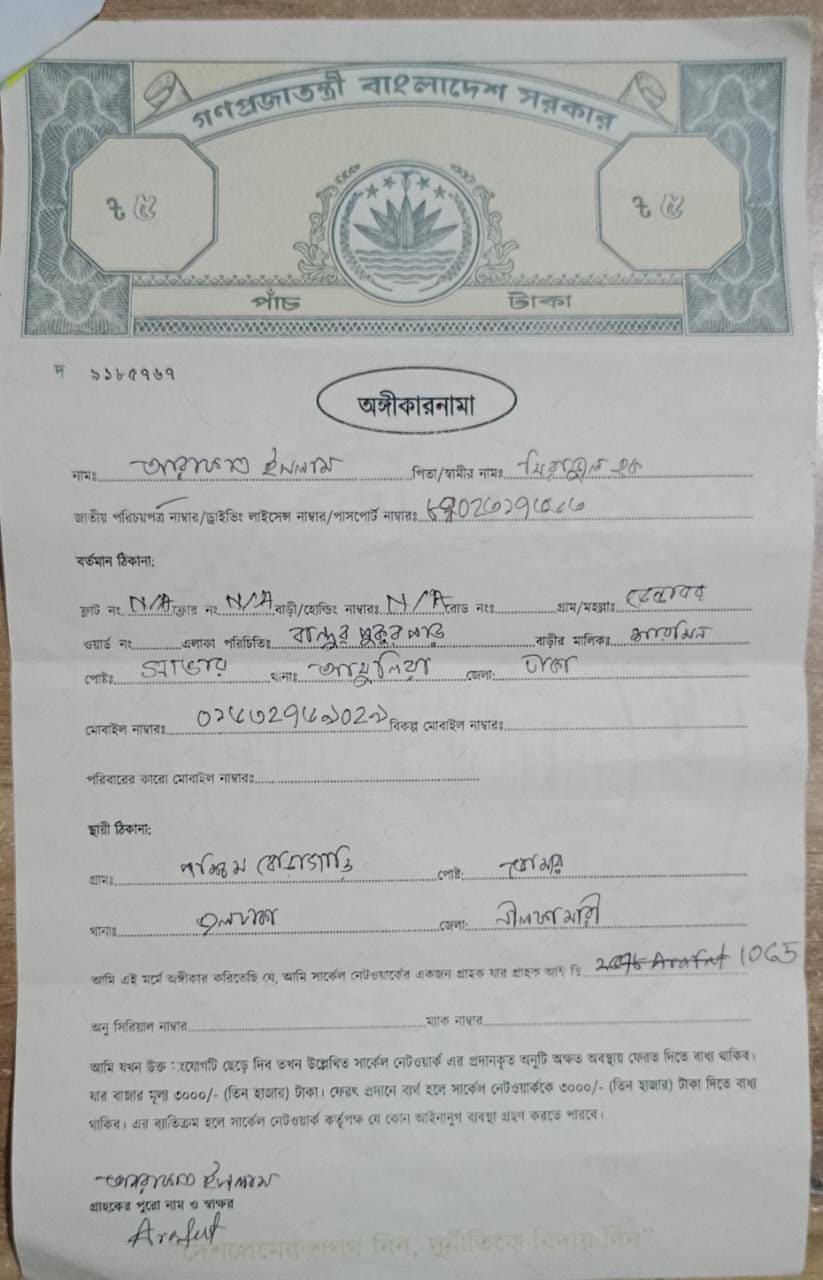 গণপ্রজাতন্ত্রী বাংলাদেশ সরকার
৳ ৫ ৳ ৫
পাঁচ টাকা
দ ৯১৮৫৭৬৭
অঙ্গীকারনামা
নামঃ আরাফাত ইসলাম পিতা/স্বামীর নামঃ
জাতীয় পরিচয়পত্র নাম্বার/ড্রাইভিং লাইসেন্স নাম্বার/পাসপোর্ট নাম্বারঃ
বর্তমান ঠিকানা:
ফ্লাট নং N/A ফ্লোর নং N/A বাড়ী/হোল্ডিং নাম্বারঃ N/A রোড নংঃ গ্রাম/মহল্লাঃ
ওয়ার্ড নং এলাকা পরিচিতিঃ পুকুর পাড় বাড়ীর মালিকঃ
পোষ্টঃ সাভার থানাঃ আশুলিয়া জেলা: ঢাকা
মোবাইল নাম্বারঃ বিকল্প মোবাইল নাম্বারঃ
পরিবারের কারো মোবাইল নাম্বারঃ
স্থায়ী ঠিকানা:
গ্রামঃ পশ্চিম বোড়াগাড়ি পোষ্ট: ডোমার
থানাঃ জেলা: নীলফামারী
আমি এই মর্মে অঙ্গীকার করিতেছি যে, আমি সার্কেল নেটওয়ার্কের একজন গ্রাহক যার গ্রাহক আই ডি 1065
অনু সিরিয়াল নাম্বার ম্যাক নাম্বার
আমি যখন উক্ত সংযোগটি ছেড়ে দিব তখন উল্লেখিত সার্কেল নেটওয়ার্ক এর প্রদানকৃত অনুটি অক্ষত অবস্থায় ফেরত দিতে বাধ্য থাকিব।
যার বাজার মূল্য ৩০০০/- (তিন হাজার) টাকা। ফেরৎ প্রদানে ব্যর্থ হলে সার্কেল নেটওয়ার্ককে ৩০০০/- (তিন হাজার) টাকা দিতে বাধ্য
থাকিব। এর ব্যাতিক্রম হলে সার্কেল নেটওয়ার্ক কর্তৃপক্ষ যে কোন আইনানুগ ব্যবস্থা গ্রহণ করতে পারবে।
আরাফাত ইসলাম
গ্রাহকের পুরো নাম ও স্বাক্ষর
Arafat
দেশপ্রেমের শপথ নিন, দুর্নীতিকে বিদায় দিন"